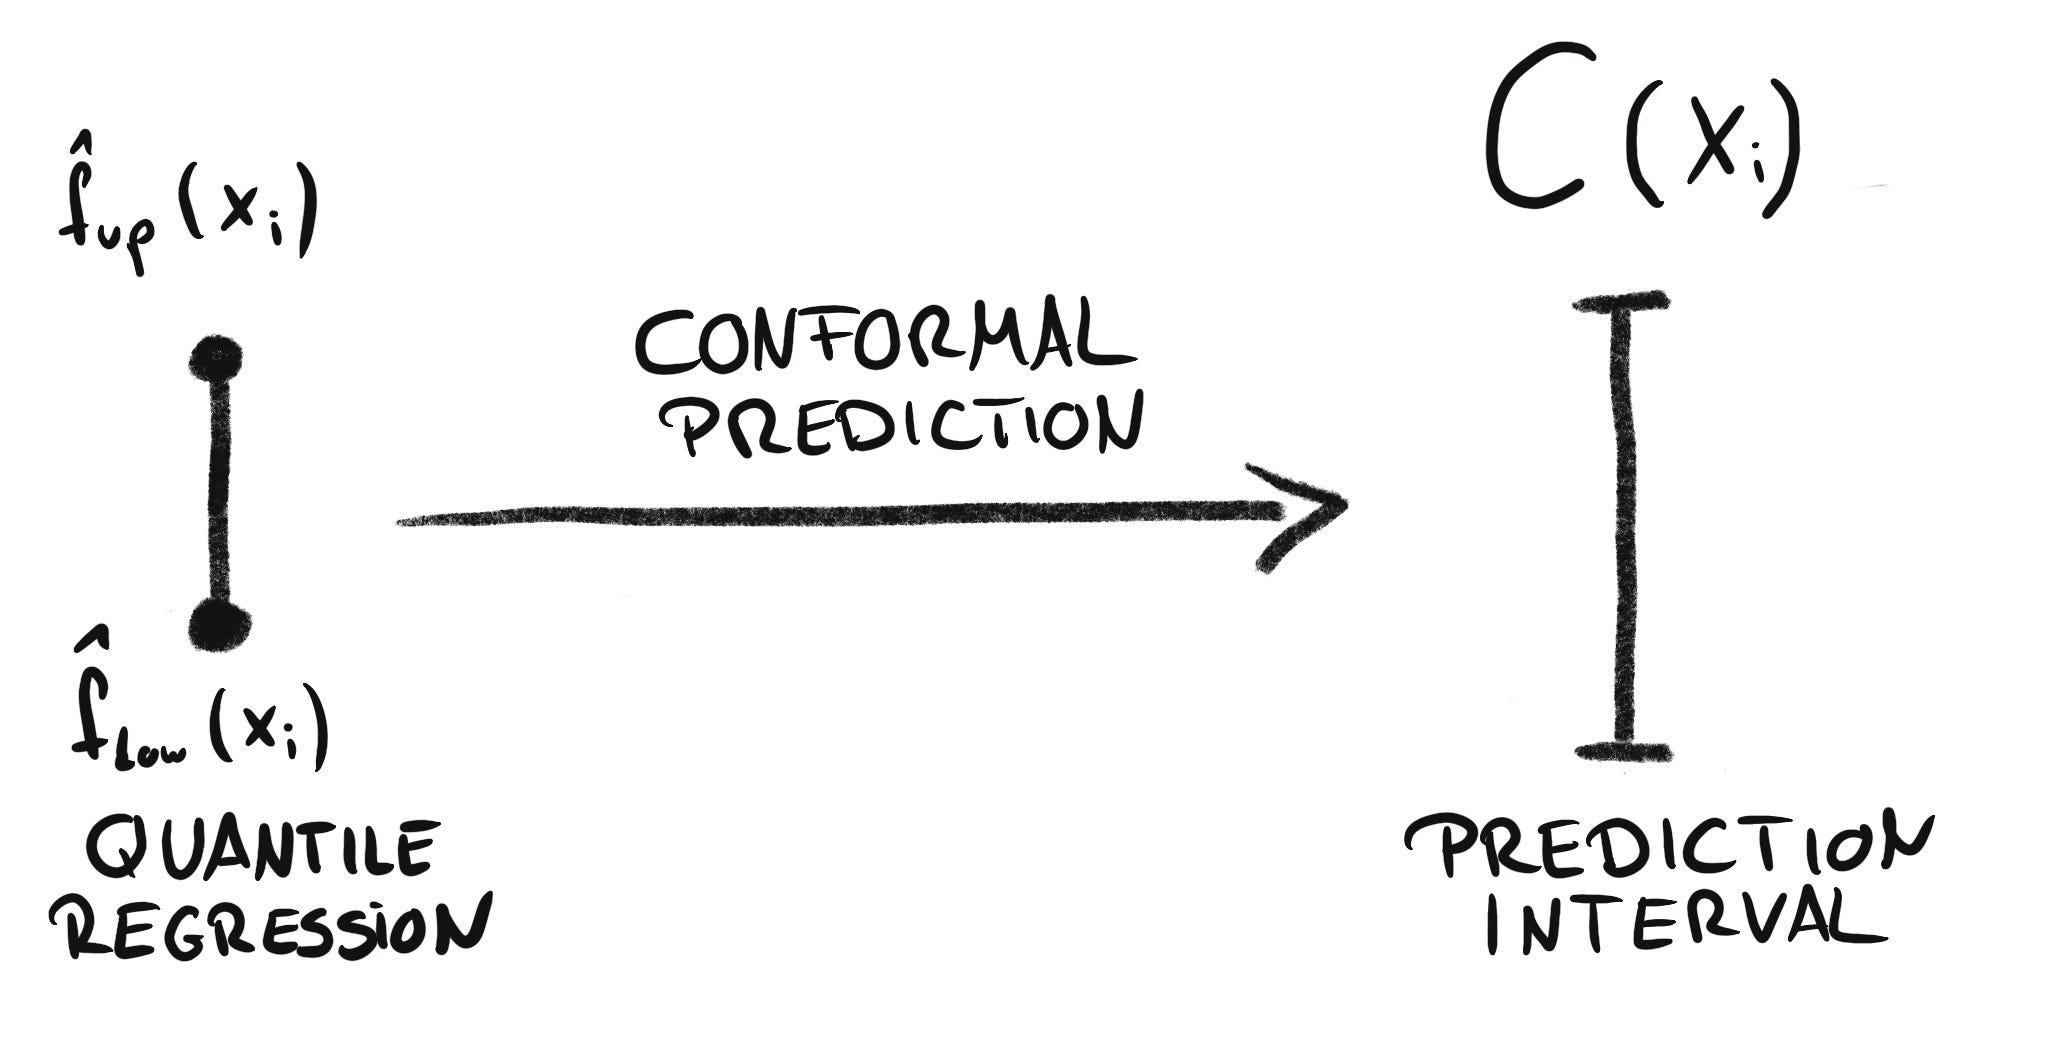 f̂up (xi)
f̂Low (xi)
QUANTILE
REGRESSION
CONFORMAL
PREDICTION
C(Xi)
PREDICTION
INTERVAL